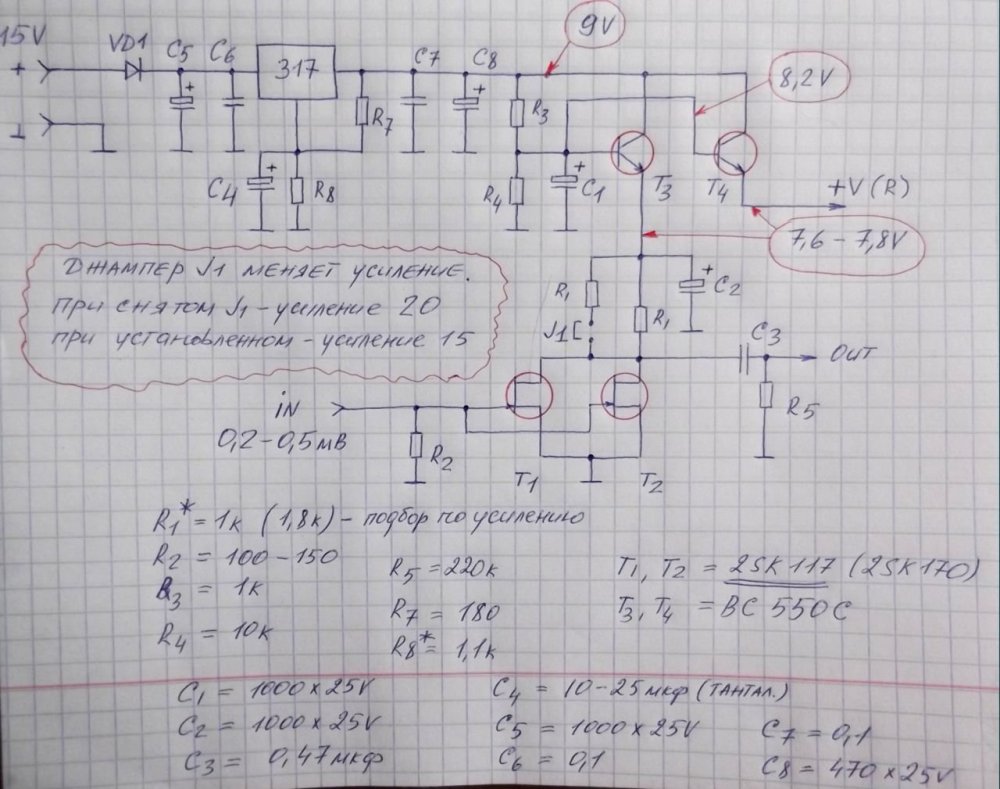 15V
VD1
C5
C6
317
C7
C8
9V
8,2V
+
⊥
+
+
R7
R3
C4
+
R8
R4
+
C1
T3
T4
+V (R)
7,6 - 7,8V
ДЖАМПЕР J1 МЕНЯЕТ УСИЛЕНИЕ.
при снятом J1 - усиление 20
при установленном - усиление 15
R1
J1
R1
+
C2
C3
OUT
R5
iN
0,2-0,5мВ
R2
T1
T2
R1* = 1к (1,8к) - подбор по усилению
R2 = 100-150
R3 = 1к
R4 = 10к
R5 = 220к
R7 = 180
R8* = 1,1к
T1, T2 = 2SK117 (2SK170)
T3, T4 = BC 550C
C1 = 1000 x 25V
C2 = 1000 x 25V
C3 = 0,47 мкф
C4 = 10-25 мкф (ТАНТАЛ.)
C5 = 1000 x 25V
C6 = 0,1
C7 = 0,1
C8 = 470 x 25V